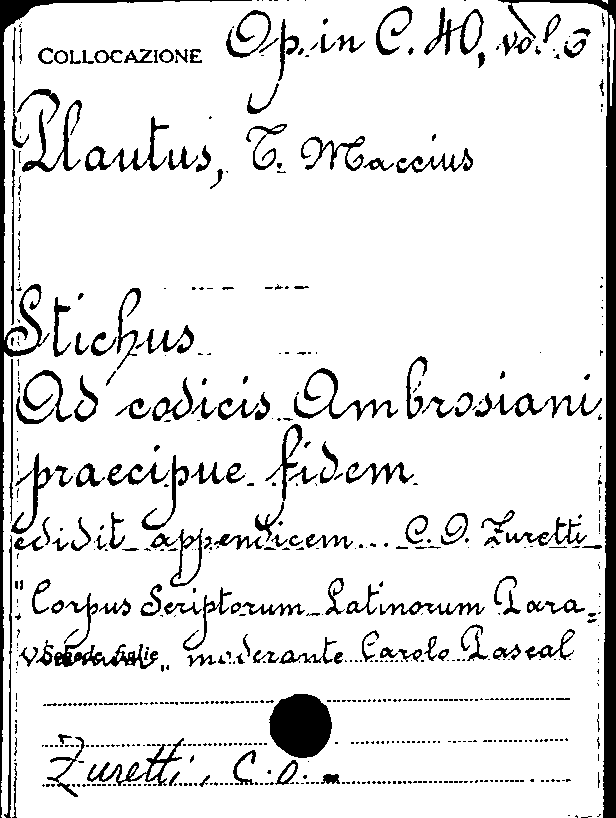 COLLOCAZIONE Op. in C. 40, vol. 6
Plautus, T. Maccius
Stichus
Ad codicis Ambrosiani
praecipue fidem
edidit appendicem... C. O. Zuretti
"Corpus Scriptorum Latinorum Para=
vianum„ moderante Carolo Pascal
Schede figlie
Zuretti, C. O. -